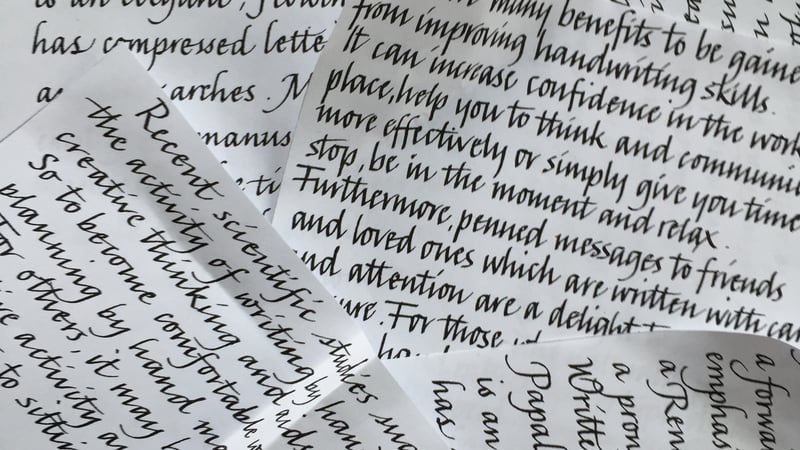 is an elegant, flowin
has compressed lette
arches. M
manus
many benefits to be gaine
from improving handwriting skills.
It can increase confidence in the work
place, help you to think and communic
more effectively or simply give you time
stop, be in the moment and relax.
Furthermore, penned messages to friends
and loved ones which are written with car
and attention are a delight
ure. For those
Recent scientific studies
the activity of writing by han
creative thinking and aids
So to become comfortable
planning by hand
For others, it may b
activity
to sittin
a forwa
emphas
a Ren
a pron
Writte
Papal
is an
has